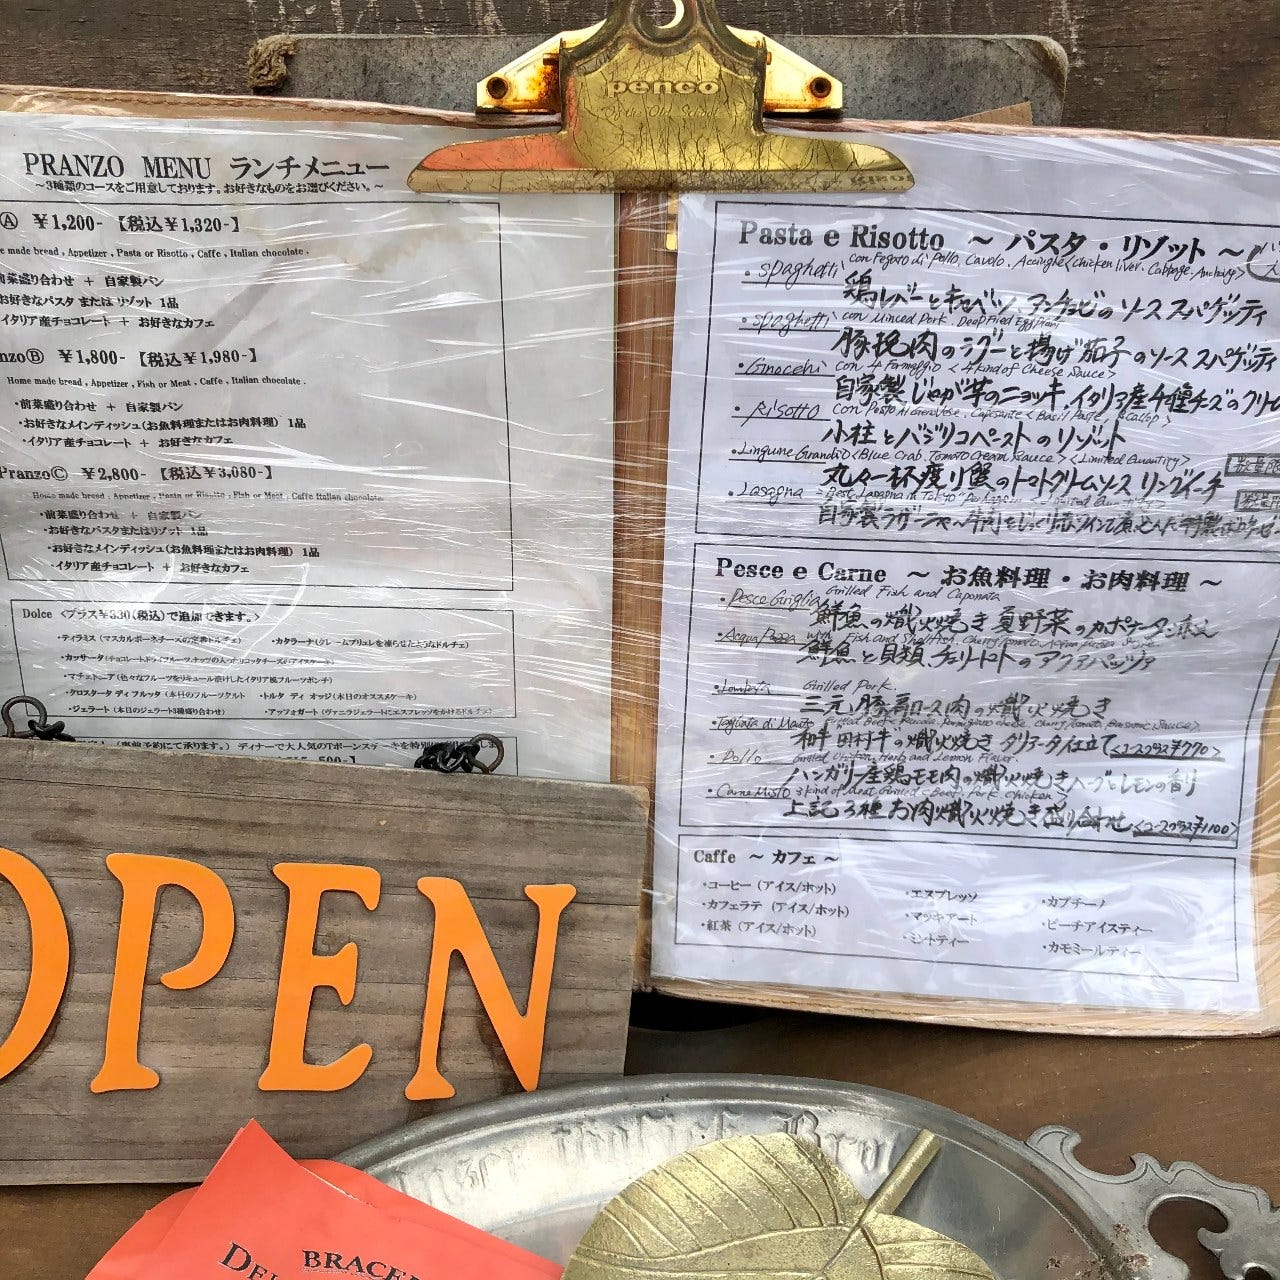 penco
PRANZO MENU ランチメニュー
～3種類のコースをご用意しております。お好きなものをお選びください。～
Ⓐ ￥1,200-【税込￥1,320-】
made bread , Appetizer , Pasta or Risotto , Caffe , Italian chocolate .
前菜盛り合わせ ＋ 自家製パン
お好きなパスタ または リゾット 1品
イタリア産チョコレート ＋ お好きなカフェ
nzoⒷ ￥1,800-【税込￥1,980-】
Home made bread , Appetizer , Fish or Meat , Caffe , Italian chocolate .
・前菜盛り合わせ ＋ 自家製パン
・お好きなメインディッシュ(お魚料理またはお肉料理) 1品
・イタリア産チョコレート ＋ お好きなカフェ
PranzoⒸ ￥2,800-【税込￥3,080-】
Home made bread , Appetizer , Pasta or Risotto , Fish or Meat , Caffe Italian chocolate
・前菜盛り合わせ ＋ 自家製パン
・お好きなパスタまたはリゾット 1品
・お好きなメインディッシュ(お魚料理またはお肉料理) 1品
・イタリア産チョコレート ＋ お好きなカフェ
Dolce <プラス￥330(税込)で追加できます。>
・ティラミス (マスカルポーネチーズの定番ドルチェ) ・カタラーナ(クレームブリュレを凍らせたようなドルチェ)
・カッサータ
・マチェドニア (色々なフルーツをリキュール漬けしたイタリア風フルーツポンチ)
・クロスタータ ディ フルッタ (本日のフルーツタルト ・トルタ ディ オッジ (本日のオススメケーキ)
・ジェラート (本日のジェラート3種盛り合わせ) ・アッフォガート (ヴァニラジェラートにエスプレッソをかけるドルチェ)
(事前予約にて承ります。) ディナーで大人気のTボーンステーキを特別
OPEN
Pasta e Risotto ～ パスタ・リゾット ～
・Spaghetti con Fegato di Pollo, Cavolo, Acciughe <chicken liver, Cabbage, Anchovy>
鶏レバーとキャベツ、アンチョビのソース スパゲッティ
・Spaghetti con Minced Pork, Deep Fried Eggplant
豚挽肉のラグーと揚げ茄子のソース スパゲッティ
・Gnocchi con 4 Formaggio <4 kind of Cheese Sauce>
自家製じゃが芋のニョッキ、イタリア産4種チーズのクリーム
・Risotto con Pesto Al Genovese, Capesante <Basil Paste, Scallop>
小柱とバジリコペーストのリゾット
・Lingume Guranchio <Blue Crab, Tomato Cream Sauce> <Limited Quantity>
丸々一杯渡り蟹のトマトクリームソース リングイーネ
・Lasagna
自家製ラザニャ～牛肉をじっくり赤ワインで煮込んだ
Pesce e Carne ～ お魚料理・お肉料理 ～
・Pesce Griglia Grilled Fish and Caponata
鮮魚の熾火焼き 夏野菜のカポナータ添え
・Acqua Pazza with Fish and Shellfish, Cherry Tomato
鮮魚と貝類、チェリートマトのアクアパッツァ
・Lombata Grilled Pork.
三元豚肩ロース肉の熾火焼き
・Tagliata di Manzo Grilled Beef, Rucola, Parmigiano cheese, Cherry Tomato, Balsamic Sauce>
和牛 田村牛の熾火焼き タリアータ仕立て <コースプラス￥770>
・Pollo Grilled Chicken, Herb and Lemon Flavor.
ハンガリー産鶏モモ肉の熾火焼き ハーブとレモンの香り
・Carne Misto 3 kind of Meat Grilled <Beef, Pork, Chicken>
上記3種 お肉熾火焼き盛り合わせ <コースプラス￥1100>
Caffe ～ カフェ ～
・コーヒー (アイス/ホット) ・エスプレッソ ・カプチーノ
・カフェラテ (アイス/ホット) ・マッキアート ・ピーチアイスティー
・紅茶 (アイス/ホット) ・ミントティー ・カモミールティー
BRACE